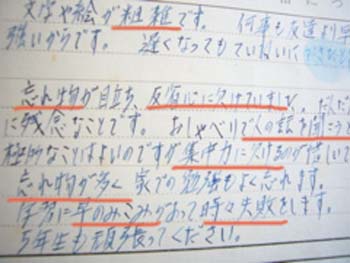 文字や絵が粗雑です。 何事も友達より早
強いからです。 遅くなってもていねいに
忘れ物が目立ち、反復心に欠けていました。だんだん
に残念なことです。 おしゃべりで人の話を聞こうと
極的なことはよいのですが集中力に欠けるのが惜しい
忘れ物が多く 家での勉強もよく忘れます。
学習に早のみこみがあって時々失敗をします。
5年生も頑張ってください。